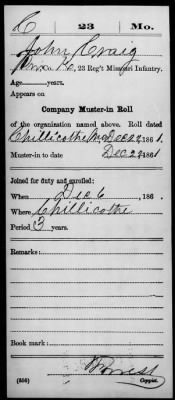 C 23 Mo.
John Craig
Co. K, 23 Reg't Missouri Infantry.
Age years.
Appears on
Company Muster-in Roll
of the organization named above. Roll dated
Chillicothe Mo Dec 22, 1861.
Muster-in to date Dec 22, 1861
Joined for duty and enrolled:
When Dec 6, 186 .
Where Chillicothe
Period 3 years.
Remarks:
Book mark:
(356) Copyist.